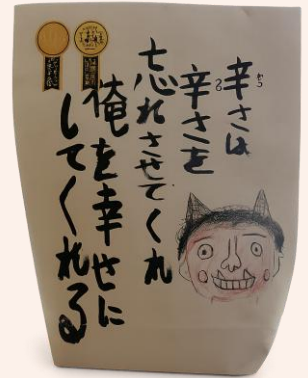 辛さは
辛さを
忘れさせてくれ
俺を幸せに
してくれる